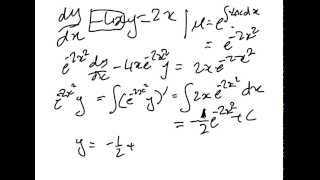 dy/dx -4xy = 2x | μ = e^∫-4x dx
= e^-2x²
e^-2x² dy/dx - 4x e^-2x² y = 2x e^-2x²
e^-2x² y = ∫(e^-2x² y)' = ∫ 2x e^-2x² dx
= -1/2 e^-2x² + C
y = -1/2 +